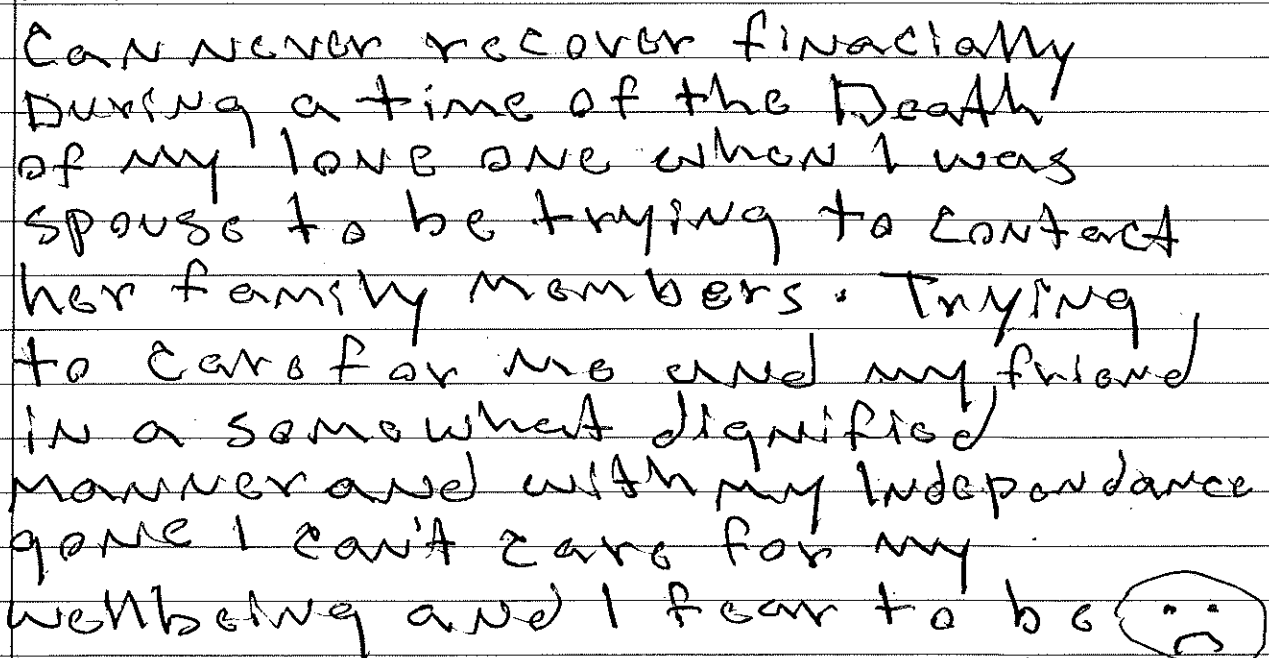 Can never recover finacially
During a time of the Death
of my love one when I was
spouse to be trying to contact
her family members. Trying
to care for me and my friend
in a somewhat dignified
manner and with my Independance
gone I can't care for my
wellbeing and I fear to be